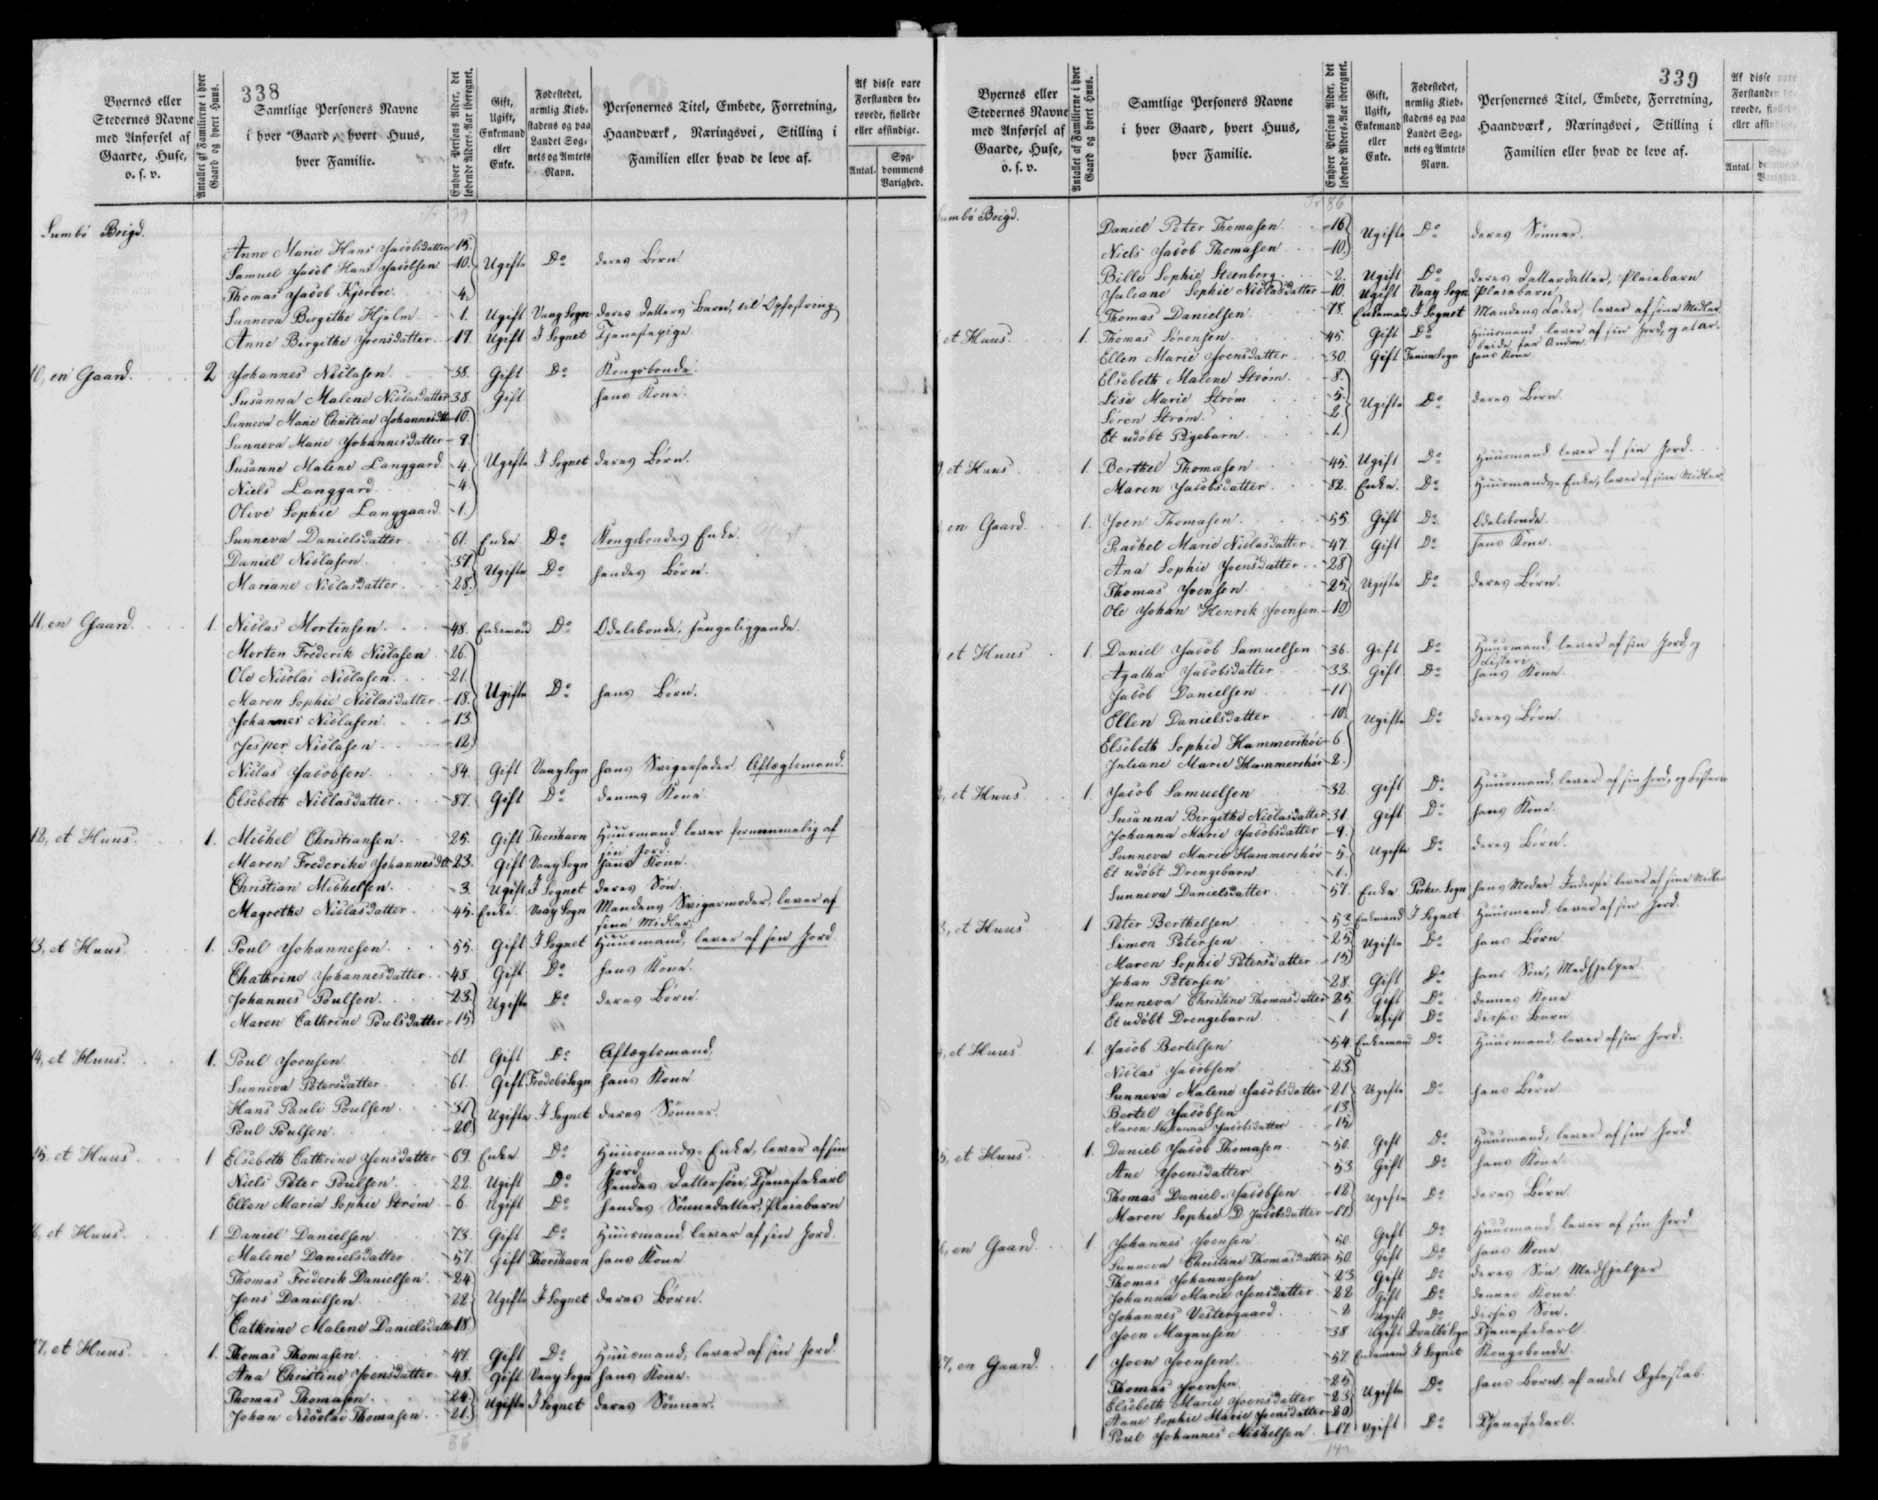 338
Byernes eller Stedernes Navne med Anførsel af Gaarde, Huse, o. s. v.
Antallet af Familierne i hver Gaard og hvert Huus.
Samtlige Personers Navne i hver Gaard, hvert Huus, hver Familie.
Enhver Persons Alder, det løbende Alders-Aar iberegnet.
Gift, Ugift, Enkemand eller Enke.
Fødestedet, nemlig Kiøbstadens og paa Landet Sognets og Amtets Navn.
Personernes Titel, Embede, Forretning, Haandværk, Næringsvei, Stilling i Familien eller hvad de leve af.
Af disse vare Forstanden berøvede, fiollede eller afsindige.
Antal.
Sygdommens Varighed.
Sumbø Bøigd.
Anne Marie Hans Jacobsdatter 15.
Samuel Jacob Hans Jacobsen 10. Ugifte Do deres Børn
Thomas Jacob Kjerboe 4.
Sunneva Birgithe Hjelm 1. Ugift Vaag Sogn deres Datters Barn, til Opfostring
Anne Birgithe Joensdatter 17 Ugift I Sognet Tjenestepige
10, en Gaard. 2 Johannes Niclasen 38. Gift Do Kongsbonde.
Susanna Malene Niclasdatter 38 Gift hans Kone.
Sunneva Marie Christine Johannesdtr 10.
Sunneva Marie Johannesdatter 9
Susanne Malene Langgard 4. Ugifte I Sognet deres Børn.
Niels Langgard 4
Olive Sophie Langgaard 1.
Sunneva Danielsdatter 61. Enke Do Kongsbondes Enke.
Daniel Niclasen 37
Mariane Niclasdatter 28. Ugifte Do hendes Børn.
11, en Gaard. 1. Niclas Mortensen 48. Enkemand Do Odelsbonde, sengeliggende.
Morten Frederik Niclasen 26.
Ole Nicolai Niclasen 21.
Maren Sophie Niclasdatter 18. Ugifte Do hans Børn.
Johannes Niclasen 13
Jesper Niclasen 12
Niclas Jacobsen 84. Gift Vaag Sogn hans Svigerfader Aftægtsmand.
Elsebeth Niclasdatter 87. Gift Do dennes Kone
12, et Huus. 1. Michel Christiansen 25. Gift Thorshavn Huusmand lever fornemmelig af sin Jord.
Maren Frederikke Johannesdtr 23. Gift Vaag Sogn hans Kone.
Christian Michelsen 3. Ugift I Sognet deres Søn.
Magrethe Niclasdatter 45. Enke Vaag Sogn Mandens Svigermoder, lever af sine Midler.
13, et Huus. 1. Poul Johannesen 55. Gift I Sognet Huusmand, lever af sin Jord
Chathrine Johannesdatter 48. Gift Do hans Kone.
Johannes Poulsen 23.
Maren Cathrine Poulsdatter 15 Ugifte Do deres Børn.
14, et Huus. 1. Poul Joensen 61. Gift Do Aftægtsmand,
Sunneva Petersdatter 61. Gift Frodebø Sogn hans Kone
Hans Pauli Poulsen 31
Poul Poulsen 20 Ugifte I Sognet deres Sønner.
15, et Huus. 1 Elsebeth Cathrine Jensdatter 69. Enke Do Huusmands-Enke, lever af sin Jord
Niels Peter Poulsen 22. Ugift Do hendes Dattersøn, Tjenestekarl
Ellen Maria Sophie Strøm 6. Ugift Do hendes Sønnedatter, Pleiebarn
6, et Huus. 1 Daniel Danielsen 73. Gift Do Huusmand lever af sin Jord.
Malene Danielsdatter 57. Gift Thorshavn hans Kone
Thomas Frederik Danielsen 24
Jens Danielsen 22 Ugifte I Sognet deres Børn.
Cathrine Malene Danielsdatter 18.
17, et Huus. 1. Thomas Thomasen 47. Gift Do Huusmand, lever af sin Jord
Ana Christine Joensdatter 48. Gift Vaag Sogn hans Kone.
Thomas Thomasen 24.
Johan Nicolai Thomasen 21. Ugifte I Sognet deres Sønner.
86
339
Byernes eller Stedernes Navne med Anførsel af Gaarde, Huse, o. s. v.
Antallet af Familierne i hver Gaard og hvert Huus.
Samtlige Personers Navne i hver Gaard, hvert Huus, hver Familie.
Enhver Persons Alder, det løbende Alders-Aar iberegnet.
Gift, Ugift, Enkemand eller Enke.
Fødestedet, nemlig Kiøbstadens og paa Landet Sognets og Amtets Navn.
Personernes Titel, Embede, Forretning, Haandværk, Næringsvei, Stilling i Familien eller hvad de leve af.
Antal
86
Sumbø Bøigd.
Daniel Peter Thomasen 16
Niels Jacob Thomasen 10 Ugifte Do deres Sønner
Bille Sophie Steenberg 2. Ugift Do deres Datterdatter, Pleiebarn
Juliane Sophie Niclasdatter 10. Ugift Vaag Sogn Pleiebarn
Thomas Danielsen 78. Enkemand I Sognet Mandens Fader, lever af sine Midler
et Huus. 1. Thomas Sørensen 45. Gift Do Huusmand lever af sin Jord, og at arbeide for Andre
Ellen Marie Joensdatter 30. Gift Famien Sogn hans Kone
Elsebeth Malene Strøm 8.
Lise Marie Strøm 5.
Søren Strøm 2. Ugifte Do deres Børn
Et udøbt Pigebarn 1.
9 et Huus 1. Berthel Thomasen 45. Ugift Do Huusmand lever af sin Jord.
Maren Jacobsdatter 82. Enke. Do Huusmands-Enke, lever af sine Midler
en Gaard. 1. Joen Thomasen 55 Gift Do Odelsbonde.
Rachel Marie Niclasdatter 47. Gift Do hans Kone.
Ana Sophie Joensdatter 28
Thomas Joensen 25 Ugifte Do deres Børn.
Ole Johan Henrik Joensen 10
et Huus 1. Daniel Jacob Samuelsen 36. Gift Do Huusmand lever af sin Jord og Fiskeri
Agatha Jacobsdatter 33. Gift Do hans Kone
Jacob Danielsen 11
Ellen Danielsdatter 10. Ugifte Do deres Børn
Elsebeth Sophie Hammershøi 6
Juliane Marie Hammershøi 2.
et Huus 1. Jacob Samuelsen 32 gift Do Huusmand lever af sin Jord, og Fiskeri
Susanna Birgithe Niclasdatter 31 gift Do hans Kone.
Johanna Marie Jacobsdatter 9.
Sunneva Marie Hammershøi 5. Ugifte Do deres Børn.
Et udøbt Drengebarn 1.
Sunneva Danielsdatter 57. Enke hans Moder lever af sine Midler
3, et Huus 1 Peter Berthelsen 53 Enkemand I Sognet Huusmand lever af sin Jord.
Simon Petersen 25
Maren Sophie Petersdatter 15 Ugifte Do hans Børn
Johan Petersen 28. Gift Do hans Søn, Medhjelper
Sunneva Christine Thomasdatter 25 Gift Do dennes Kone
Et udøbt Drengebarn 1 Ugift Do disses Barn
et Huus 1. Jacob Bertelsen 54 Enkemand Do Huusmand, lever af sin Jord.
Niclas Jacobsen 23
Sunneva Malene Jacobsdatter 21 Ugifte Do hans Børn
Bertel Jacobsen 13
Jacobsdatter 15
5, et Huus. 1. Daniel Jacob Thomasen 50. Gift Do Huusmand, lever af sin Jord
Ane Joensdatter 53 Gift Do hans Kone
Thomas Daniel Jacobsen 12
Maren Sophie D. Jacobsdatter 11 Ugifte Do deres Børn
6, en Gaard. 1 Johannes Joensen 50. Gift Do Huusmand lever af sin Jord
Sunneva Christine Thomasdatter 50. Gift Do hans Kone
Thomas Johannesen 23 Gift Do deres Søn Medhjelper
Johanna Marie Jensdatter 22 Gift Do dennes Kone
Johannes Vestergaard 2 Ugift Do disses Søn.
Joen Magnusen 38 Ugift Qvalbø Sogn Tjenestekarl
7, en Gaard. 1 Joen Joensen 57. Enkemand I Sognet Kongsbonde
Thomas Joensen 25
Elsebeth Marie Joensdatter 23 Ugifte Do hans Børn af andet Ægteskab
Anne Sophie Marie Joensdatter 20
Poul Johannes Michelsen 17 Ugift Do Tjenestekarl.